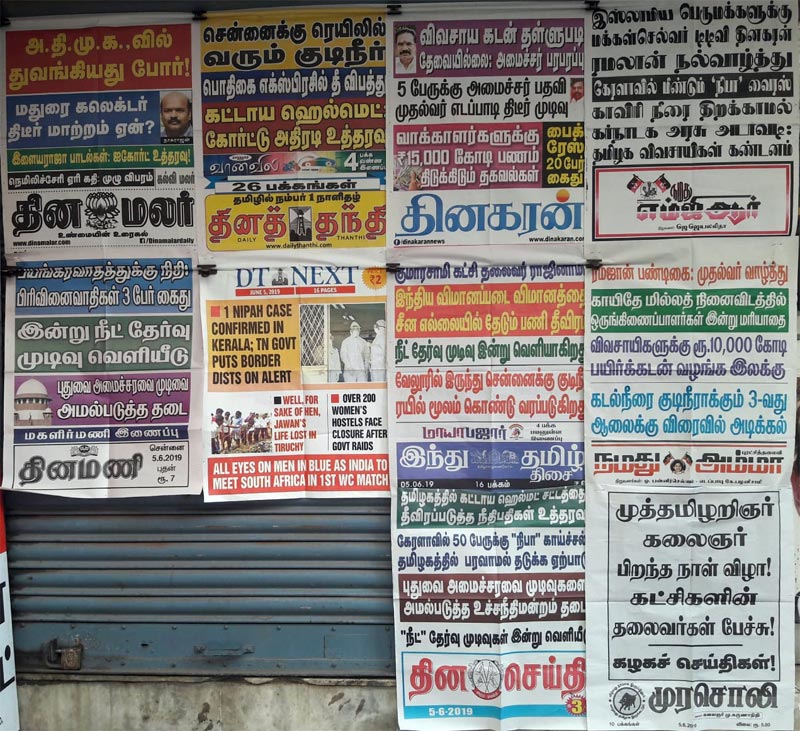 அ.தி.மு.க.,வில்
துவங்கியது போர்!
மதுரை கலெக்டர்
திடீர் மாற்றம் ஏன்?
நாகராஜன்
இளையராஜா பாடல்கள்: ஐகோர்ட் உத்தரவு!
நெமிலிச்சேரி ஏரி கதி: முழு விபரம்
கல்வி மலர்
தின மலர்
உண்மையின் உரைகல்
www.dinamalar.com
/Dinamalardaily
சென்னைக்கு ரெயிலில்
வரும் குடிநீர்
பொதிகை எக்ஸ்பிரசில் தீ விபத்து
கட்டாய ஹெல்மெட்:
கோர்ட்டு அதிரடி உத்தரவு
வானவில்
4 பக்க
வண்ண
இணைப்பு
26 பக்கங்கள்
தமிழில் நம்பர் 1 நாளிதழ்
தினத் தந்தி
DAILY THANTHI
www.dailythanthi.com
விவசாய கடன் தள்ளுபடி
தேவையில்லை: அமைச்சர் பரபரப்பு
5 பேருக்கு அமைச்சர் பதவி
முதல்வர் எடப்பாடி திடீர் முடிவு
வாக்காளர்களுக்கு
₹15,000 கோடி பணம்
திடுக்கிடும் தகவல்கள்
பைக்
ரேஸ்
20 பேர்
கைது
தினகரன்
/dinakarannews
www.dinakaran.com
இஸ்லாமிய பெருமக்களுக்கு
மக்கள்செல்வர் டிடிவி தினகரன்
ரமலான் நல்வாழ்த்து
கேரளாவில் மீண்டும் 'நிபா' வைரஸ்
காவிரி நீரை திறக்காமல்
கர்நாடக அரசு அடாவடி:
தமிழக விவசாயிகள் கண்டனம்
நமது
எம்ஜிஆர்
நிறுவனர்: ஜெ ஜெயலலிதா
பயங்கரவாதத்துக்கு நிதி:
பிரிவினைவாதிகள் 3 பேர் கைது
இன்று நீட் தேர்வு
முடிவு வெளியீடு
புதுவை அமைச்சரவை முடிவை
அமல்படுத்த தடை
மகளிர்மணி இணைப்பு
தினமணி
சென்னை
5.6.2019
புதன்
ரூ. 7
DT NEXT
JUNE 5, 2019
16 PAGES
₹2
1 NIPAH CASE
CONFIRMED IN
KERALA; TN GOVT
PUTS BORDER
DISTS ON ALERT
WELL, FOR
SAKE OF HEN,
JAWAN'S
LIFE LOST IN
TIRUCHY
OVER 200
WOMEN'S
HOSTELS FACE
CLOSURE AFTER
GOVT RAIDS
ALL EYES ON MEN IN BLUE AS INDIA TO
MEET SOUTH AFRICA IN 1ST WC MATCH
குமாரசாமி கட்சி தலைவர் ராஜினாமா
இந்திய விமானப்படை விமானத்தை
சீன எல்லையில் தேடும் பணி தீவிரம்
நீட் தேர்வு முடிவு இன்று வெளியாகிறது
வேலூரில் இருந்து சென்னைக்கு குடிநீர்
ரயில் மூலம் கொண்டு வரப்படுகிறது
மாயாபஜார்
4 பக்க
இணைப்பு
இந்து தமிழ்
திசை
05.06.19
16 பக்கம்
ரம்ஜான் பண்டிகை: முதல்வர் வாழ்த்து
காயிதே மில்லத் நினைவிடத்தில்
ஒருங்கிணைப்பாளர்கள் இன்று மரியாதை
விவசாயிகளுக்கு ரூ.10,000 கோடி
பயிர்க்கடன் வழங்க இலக்கு
கடல்நீரை குடிநீராக்கும் 3-வது
ஆலைக்கு விரைவில் அடிக்கல்
புரட்சித்தலைவி
நமது அம்மா
நிறுவனர்கள்: ஓ. பன்னீர்செல்வம் - எடப்பாடி கே. பழனிசாமி
தமிழகத்தில் கட்டாய ஹெல்மெட் சட்டத்தை
தீவிரப்படுத்த நீதிபதிகள் உத்தரவு
கேரளாவில் 50 பேருக்கு "நிபா" காய்ச்சல்
தமிழகத்தில் பரவாமல் தடுக்க ஏற்பாடு
புதுவை அமைச்சரவை முடிவுகளை
அமல்படுத்த உச்சநீதிமன்றம் தடை
"நீட்" தேர்வு முடிவுகள் இன்று வெளியீடு
தின செய்தி
5-6-2019
3
முத்தமிழறிஞர்
கலைஞர்
பிறந்த நாள் விழா!
கட்சிகளின்
தலைவர்கள் பேச்சு!
கழகச் செய்திகள்!
முரசொலி
கலைஞர் மு.கருணாநிதி
10 பக்கங்கள்
5.6.2019
விலை: ரூ. 5.00